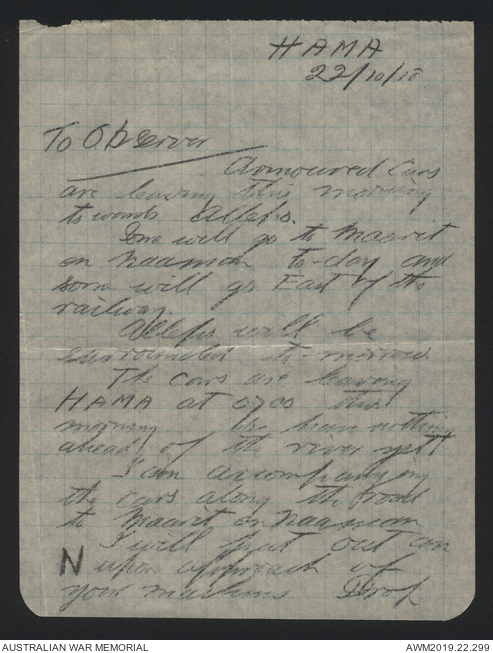 HAMA
22/10/18
To Observer
Armoured Cars
are leaving this morning
towards Aleppo.
Some will go to Maarit
en Naaman to-day and
some will go East of the
railway.
Aleppo will be
surrounded to-morrow.
The cars are leaving
HAMA at 0700 this
morning nothing
ahead of the river yet
I am accompanying
the cars along the road
to Maarit en Naaman
I will put out an
N upon approach of
your machine Drop
AUSTRALIAN WAR MEMORIAL
AWM2019.22.299